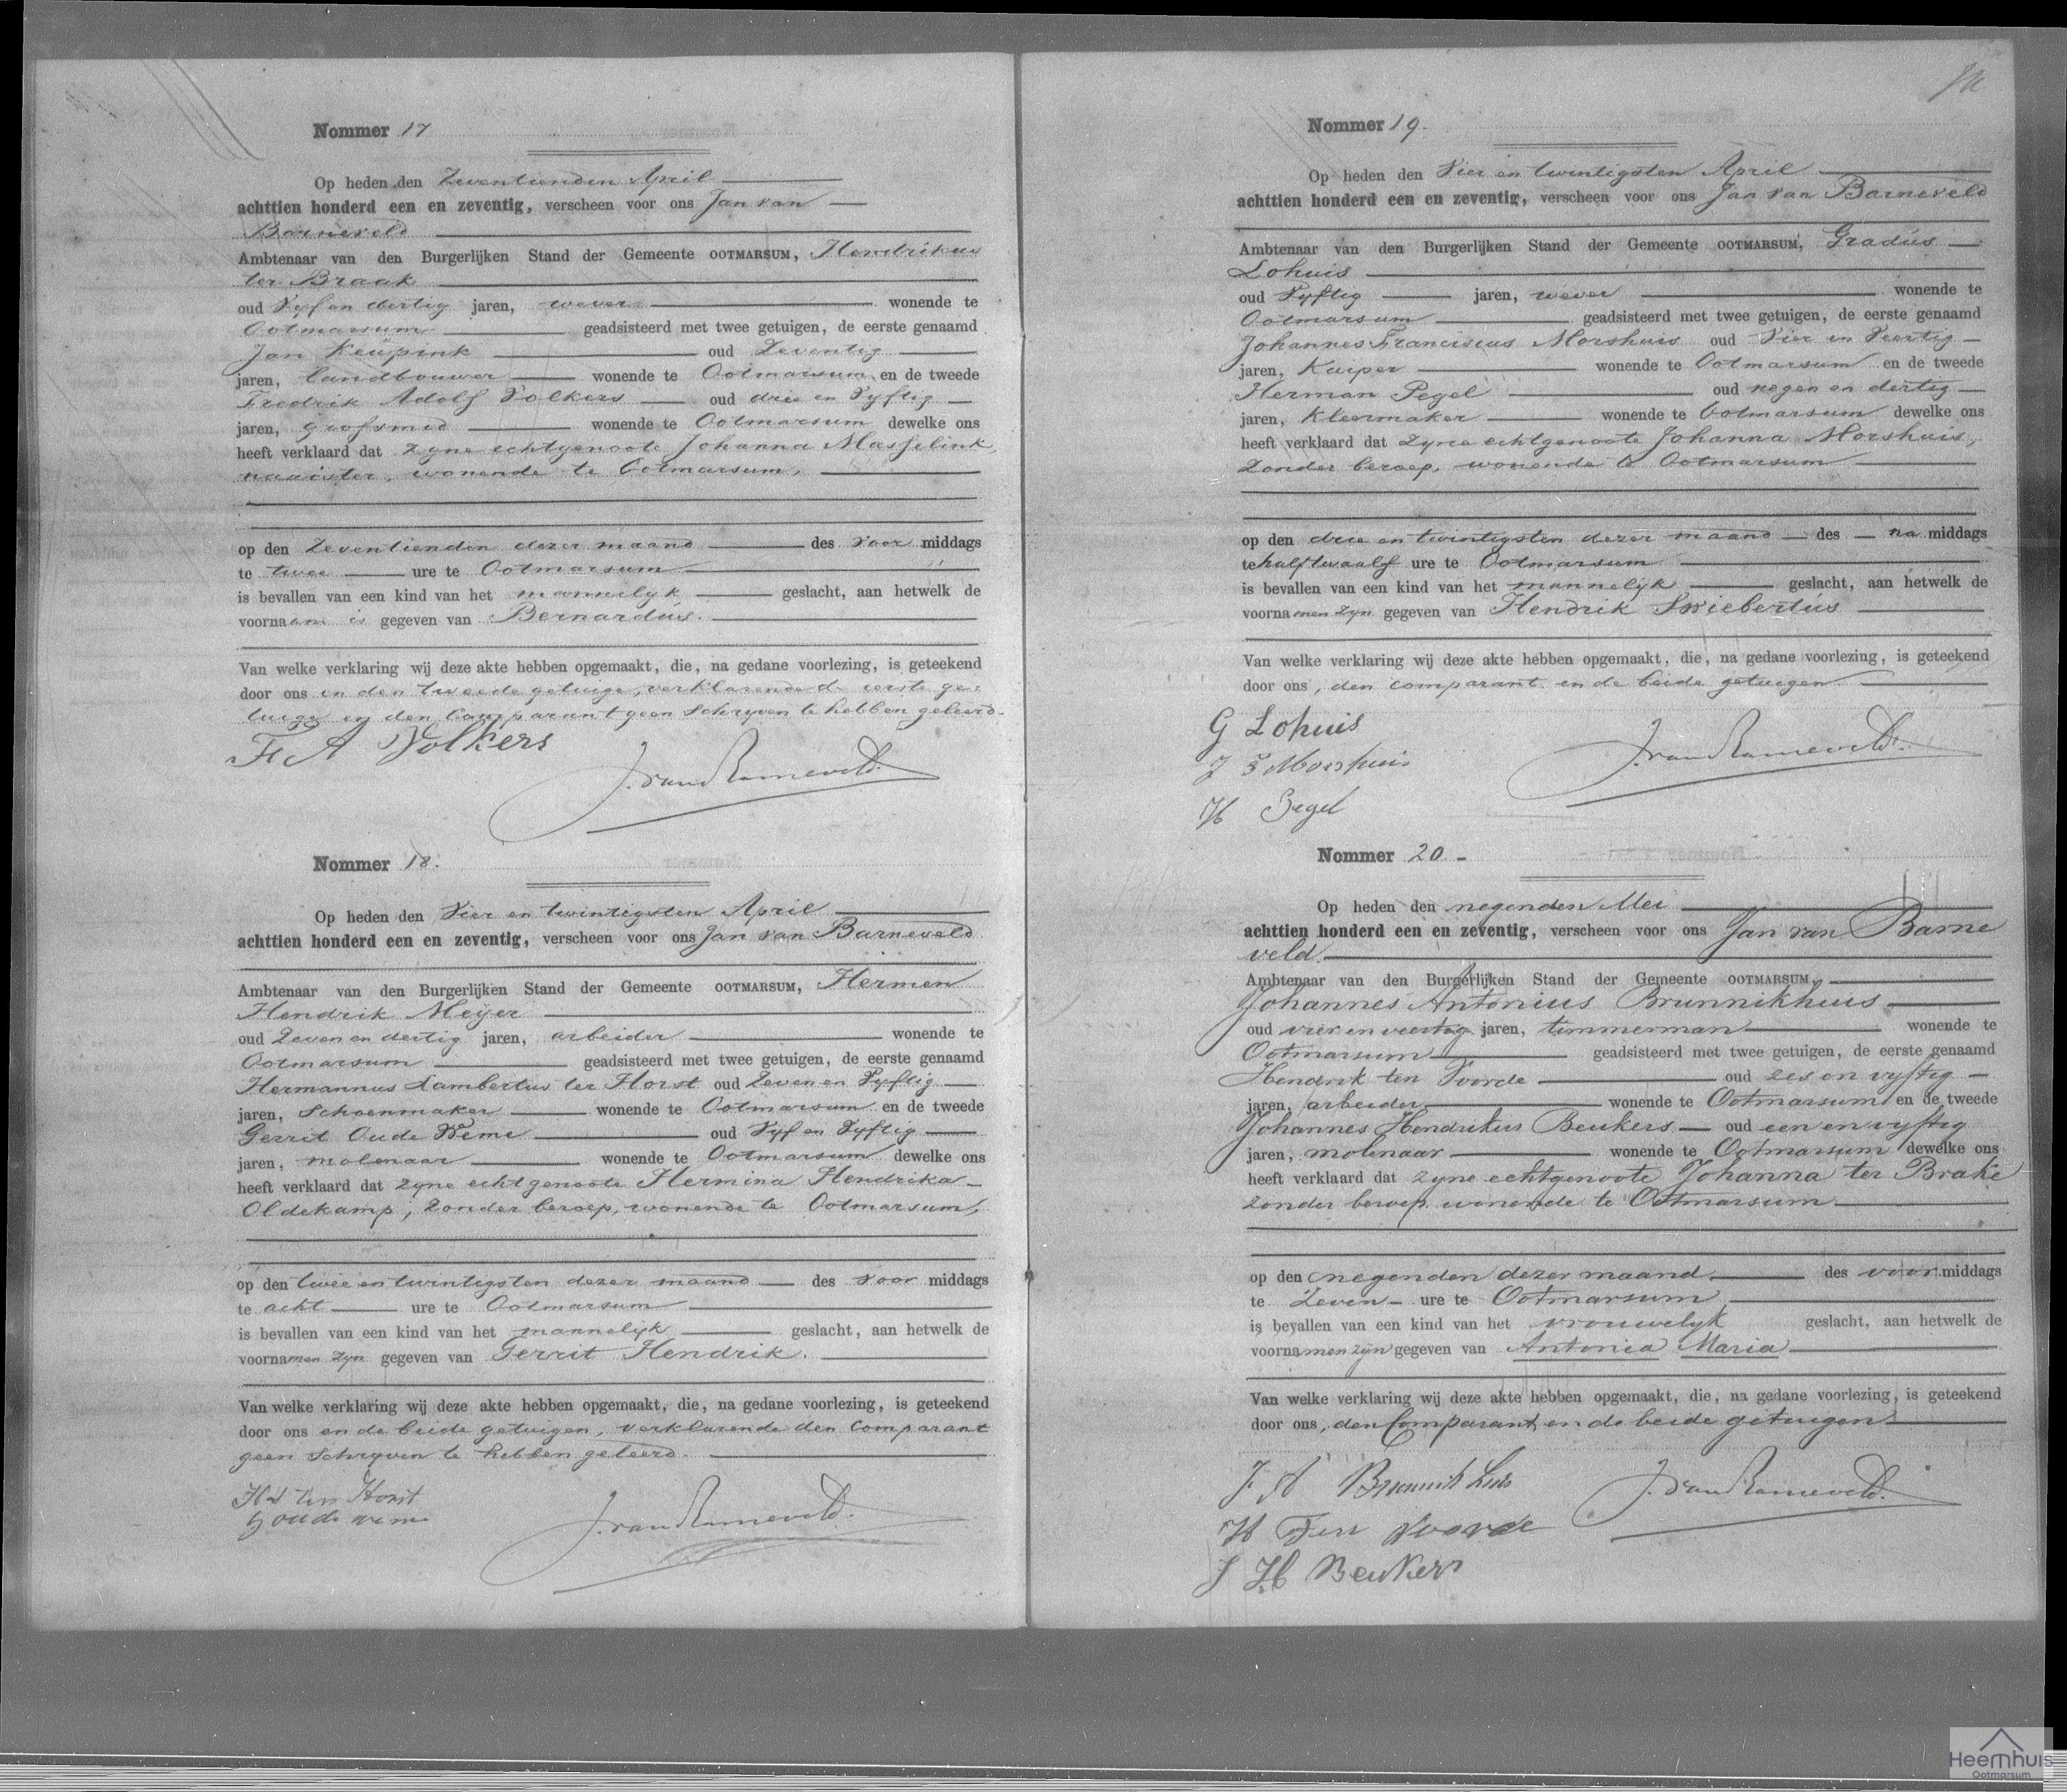 Nommer 17
Op heden den Zeventienden April
achttien honderd een en zeventig, verscheen voor ons Jan van
Barneveld
Ambtenaar van den Burgerlijken Stand der Gemeente OOTMARSUM, Hendrikus
ter Braak
oud Vyf en dertig jaren, wever wonende te
Ootmarsum geadsisteerd met twee getuigen, de eerste genaamd
Jan Keupink oud Zeventig
jaren, landbouwer wonende te Ootmarsum en de tweede
Fredrik Adolf Volkers oud drie en Vyftig
jaren, grofsmid wonende te Ootmarsum dewelke ons
heeft verklaard dat zyne echtgenoote Johanna Masselink,
naaister, wonende te Ootmarsum,
op den Zeventienden dezer maand des voor middags
te twee ure te Ootmarsum
is bevallen van een kind van het mannelyk geslacht, aan hetwelk de
voornaam is gegeven van Bernardus.
Van welke verklaring wij deze akte hebben opgemaakt, die, na gedane voorlezing, is geteekend
door ons en den tweede getuige, verklarende de eerste ge-
tuige en den Comparant geen Schryven te hebben geleerd.
F A Volkers
J. van Barneveld.
Nommer 18.
Op heden den Vier en twintigsten April
achttien honderd een en zeventig, verscheen voor ons Jan van Barneveld
Ambtenaar van den Burgerlijken Stand der Gemeente OOTMARSUM, Hermen
Hendrik Meyer
oud Zeven en dertig jaren, arbeider wonende te
Ootmarsum geadsisteerd met twee getuigen, de eerste genaamd
Hermannus Lambertus ter Horst oud Zeven en Vyftig
jaren, Schoenmaker wonende te Ootmarsum en de tweede
Gerrit Oude Weme oud Vyf en Vyftig
jaren, molenaar wonende te Ootmarsum dewelke ons
heeft verklaard dat zyne echtgenoote Hermina Hendrika
Oldekamp, Zonder beroep, wonende te Ootmarsum,
op den twee en twintigsten dezer maand des voor middags
te acht ure te Ootmarsum
is bevallen van een kind van het mannelyk geslacht, aan hetwelk de
voornamen zyn gegeven van Gerrit Hendrik.
Van welke verklaring wij deze akte hebben opgemaakt, die, na gedane voorlezing, is geteekend
door ons en de beide getuigen, verklarende den Comparant
geen Schryven te hebben geleerd.
H L ter Horst
G oude weme
J. van Barneveld.
Nommer 19.
Op heden den Vier en twintigsten April
achttien honderd een en zeventig, verscheen voor ons Jan van Barneveld
Ambtenaar van den Burgerlijken Stand der Gemeente OOTMARSUM, Gradus
Lohuis
oud Vyftig jaren, wever wonende te
Ootmarsum geadsisteerd met twee getuigen, de eerste genaamd
Johannes Franciscus Morshuis oud Vier en Veertig
jaren, Kuiper wonende te Ootmarsum en de tweede
Herman Pegel oud negen en dertig
jaren, Kleermaker wonende te Ootmarsum dewelke ons
heeft verklaard dat zyne echtgenoote Johanna Morshuis,
Zonder beroep, wonende te Ootmarsum
op den drie en twintigsten dezer maand des na middags
te half twaalf ure te Ootmarsum
is bevallen van een kind van het mannelyk geslacht, aan hetwelk de
voornamen zyn gegeven van Hendrik Swiebertus
Van welke verklaring wij deze akte hebben opgemaakt, die, na gedane voorlezing, is geteekend
door ons, den comparant en de beide getuigen
G Lohuis
J F Morshuis
H Pegel
J. van Barneveld.
Nommer 20
Op heden den negenden Mei
achttien honderd een en zeventig, verscheen voor ons Jan van Barne
veld.
Ambtenaar van den Burgerlijken Stand der Gemeente OOTMARSUM,
Johannes Antonius Brunnikhuis
oud vier en veertig jaren, timmerman wonende te
Ootmarsum geadsisteerd met twee getuigen, de eerste genaamd
Hendrik ten Voorde oud zes en vyftig
jaren, arbeider wonende te Ootmarsum en de tweede
Johannes Hendrikus Beukers oud een en vyftig
jaren, molenaar wonende te Ootmarsum dewelke ons
heeft verklaard dat zyne echtgenoote Johanna ter Brake
zonder beroep wonende te Ootmarsum
op den negenden dezer maand des voor middags
te Zeven ure te Ootmarsum
is bevallen van een kind van het vrouwelyk geslacht, aan hetwelk de
voornamen zyn gegeven van Antonia Maria
Van welke verklaring wij deze akte hebben opgemaakt, die, na gedane voorlezing, is geteekend
door ons, den Comparant en de beide getuigen
J A Brunnikhuis
H Ten Voorde
J H Beukers
J. van Barneveld.
Heemhuis
Ootmarsum